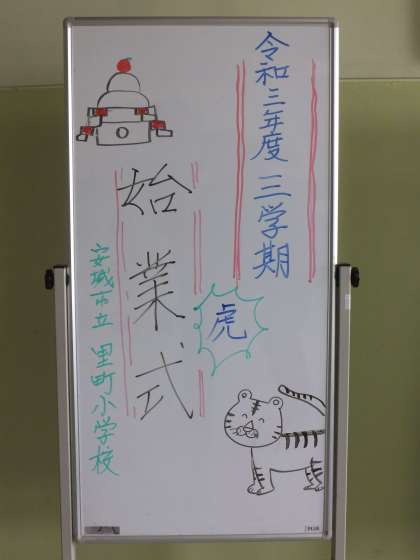 令和三年度 三学期
始業式
虎
安城市立 里町小学校